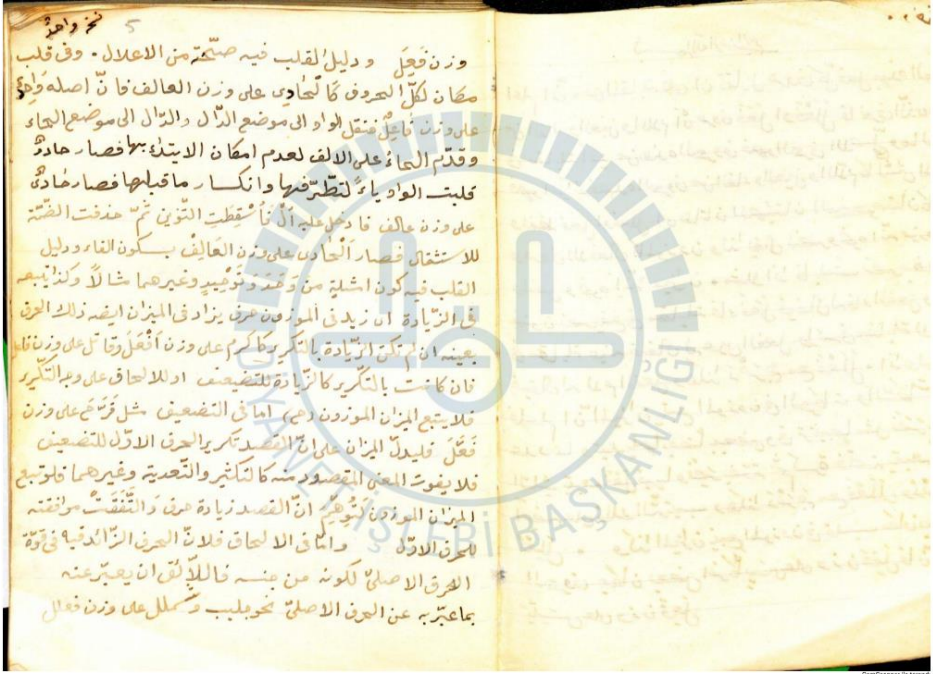 5
وزن فَعِلَ ودليل القلب فيه صحّته من الاعلال . وفى قلب
مكان لكلّ الحروف كَالْحَادِى على وزن العالف فانّ اصله وَاحِدٌ
على وزن فَاعِلٌ فنقل الواو الى موضع الدّال والدّال الى موضع الحاء
وقدّم الحاءُ على الالف لعدم امكان الابتداء بها فصار حادِوٌ
قلبت الواو ياءً لتطرّفها وانكسار ما قبلها فصار حَادِىٌ
على وزن عالف فادخل عليه اَلْ فَاُسْقِطَتِ التّنوين ثمّ حذفت الضمّة
للاستثقال فصار اَلْحَادى على وزن العَالِفْ بسكون الفاء ودليل
القلب فيه كون امثلة من وَحَدَ وتَوْحِيدٍ وغيرهما مثالاً وكذا يتبعه
فى الزّيادة ان زيد فى الموزون حرف يزاد فى الميزان ايضه ذلك الحرف
بعينه ان لم تكن الزّيادة بالتكرير كاكرم على وزن اَفْعَلَ وقاتل على وزن فاعل
فان كانت بالتّكرير كالزّيادة للتضعيف او للالحاق على وجه التّكرير
فلا يتبع الميزان الموزون امّا فى التضعيف مثل فَرَّحَ على وزن
فَعَّلَ فليدلّ الميزان على انّ القصد تكرير الحرف الاوّل للتضعيف
فلا يفوت المعنى المقصود منه كالتكثير والتّعدية وغيرهما فلو تبع
الميزان الموزون لَتُوُهِّمَ انّ القصد زيادة حرف وَالتَّفَقَتْ موافقته
للحرف الاوّل وامّا فى الالحاق فلانّ الحرف الزّائد فيه فى قوّة
الحرف الاصلىّ لكونه من جنسه فاللّائق ان يعبّر عنه
بما عبّر به عن الحرف الاصلىّ نحو جلبب وشملل على وزن فعلل
DİYANET İŞLERİ BAŞKANLIĞI